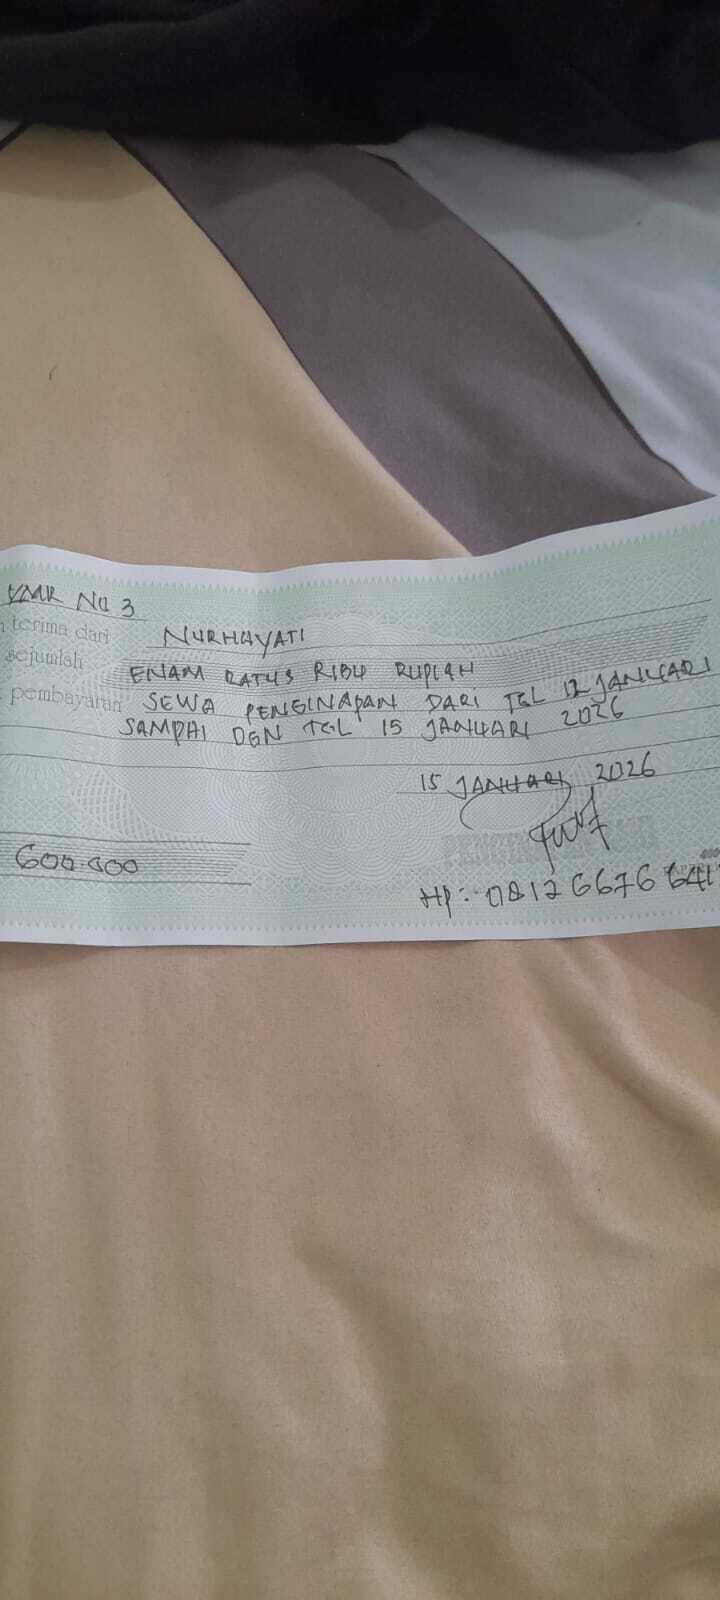 KMR NO 3
terima dari NURHAYATI
sejumlah ENAM RATUS RIBU RUPIAH
pembayaran SEWA PENGINAPAN DARI TGL 12 JANUARI
SAMPAI DGN TGL 15 JANUARI 2026
15 JANUARI 2026
600.000
HP: 0812 6676 641